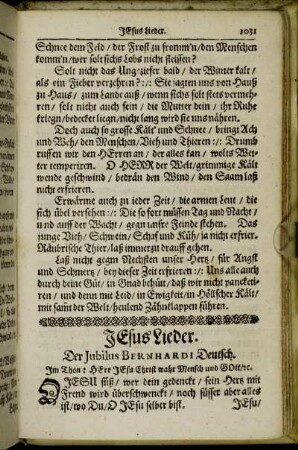 JEsus Lieder. 1031
Schnee dem Feld / der Frost zu fromm'n / den Menschen
komm'n / wer solt sichs Lobs nicht fleissen?
Solt nicht das Ungziefer bald / der Winter kalt /
als ein Fieber verzehren? :/: Sie jagten uns von Hauß
zu Hauß / zum Lande auß / wenn sichs solt stets vermeh-
ren / solt nicht auch sein / die Mutter dein / ihr Ruhe
kriegn / bedecket liegn / nicht lang wird sie uns nähren.
Doch auch so grosse Kält' und Schnee / bringt Ach
und Weh / den Menschen / Vieh und Thieren :/: Drumb
ruffen wir den HErren an / der alles kan / wolts Wet-
ter temperiren. O HERR der Welt / grimmige Kält
wende geschwind / bedräu den Wind / den Saam laß
nicht erfrieren.
Erwärme auch zu jeder Zeit / die armen Leut / die
sich übel versehen :/: Die so fort müssen Tag und Nacht /
und auff der Wacht / gegn unsre Feinde stehen. Das
junge Vieh / Schwein / Schaf und Küh / ja nicht erfrier.
Räubrische Thier / laß immerzt drauff gehen.
Laß nicht gegen Nechsten unser Hertz / für Angst
und Schmertz / bey dieser Zeit erfrieren :/: Uns alle auch
durch deine Güt / in Gnad behüt / daß wir nicht pancketi-
ren / und denn mit Leid / in Ewigkeit / in Höllscher Kält /
mit samt der Welt / heulend Zähnklappen führen.
JEsus Lieder.
Der Jubilus BERNHARDI Deutsch.
Im Thon: HErr JEsu Christ wahr Mensch und GOtt / rc.
O JESU süß / wer dein gedenckt / sein Hertz mit
Freud wird überschwenckt / noch süsser aber alles
ist / wo Du / O JEsu selber bist.
JEsu /